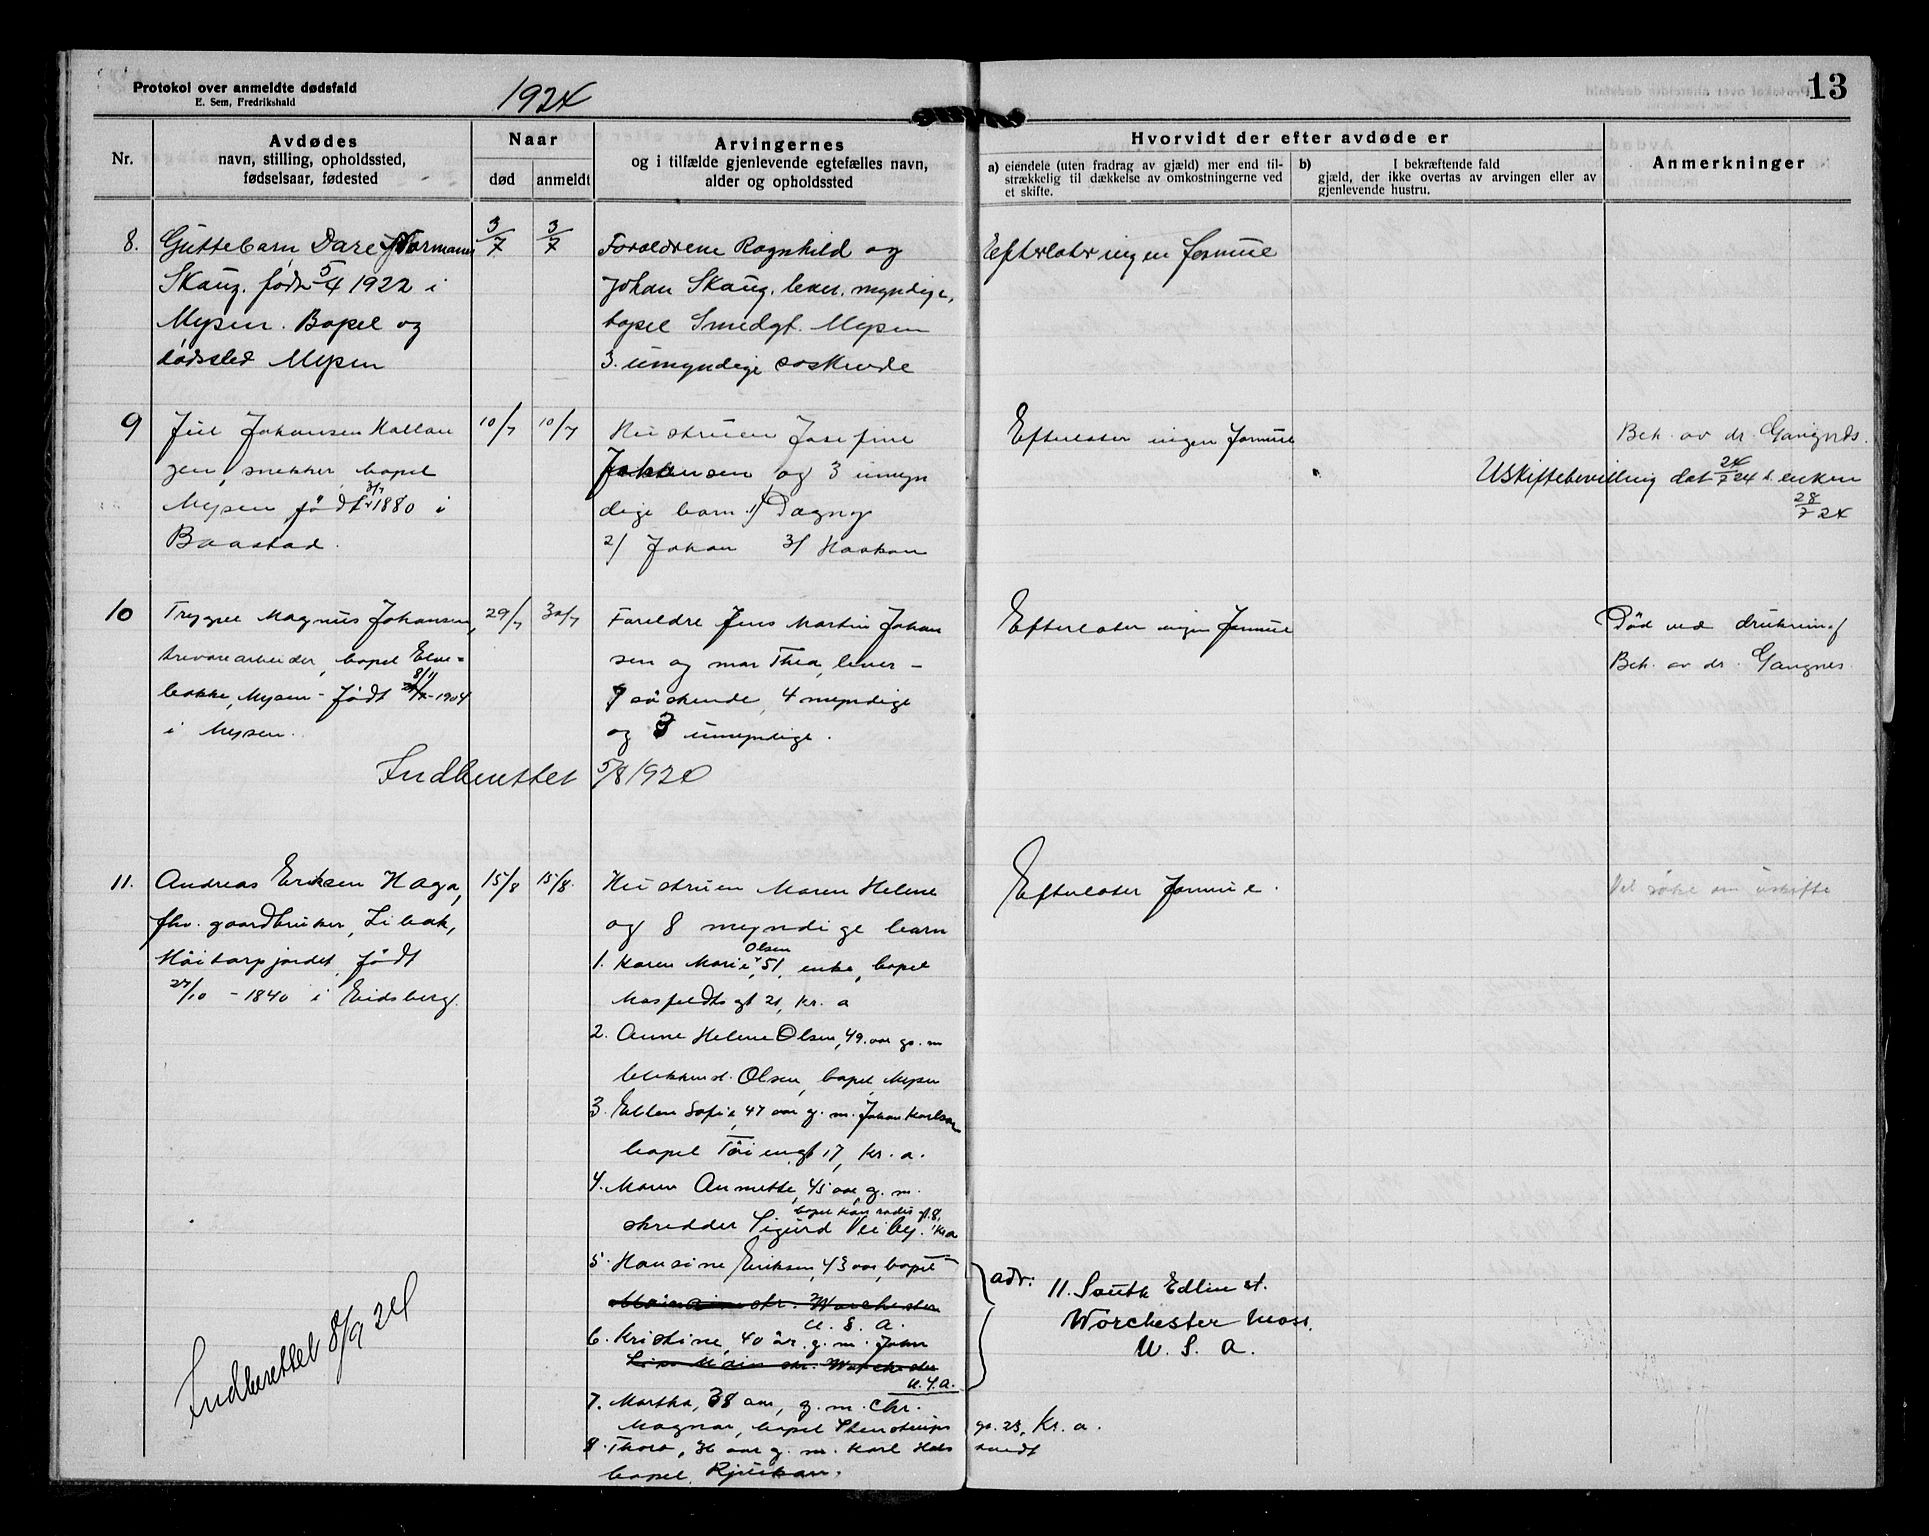 Protokol over anmeldte dødsfald
E. Sem, Fredrikshald
1924
13
Nr.
Avdødes
navn, stilling, opholdssted,
fødselsaar, fødested
Naar
død
anmeldt
Arvingernes
og i tilfælde gjenlevende egtefælles navn,
alder og opholdssted
Hvorvidt der efter avdøde er
a) eiendele (uten fradrag av gjæld) mer end til-
strækkelig til dækkelse av omkostningerne ved
et skifte.
b) I bekræftende fald
gjæld, der ikke overtas av arvingen eller av
gjenlevende hustru.
Anmerkninger
8.
Guttebarn Dare Normann
Skaug. født 5/4 1922 i
Mysen. Bopel og
dødssted Mysen
3/7
3/7
Forældrene Ragnhild og
Johan Skaug. lever, myndige,
bopel Smedgt. Mysen
3. umyndige søskende
Efterlater ingen formue
9
Juel Johansen Kallau
gen, snekker, bopel
Mysen, født 3/7 1880 i
Baastad.
10/7
10/7
Hustruen Josefine
Johansen og 3 umyn
dige barn 1/ Dagny
2/ Johan 3/ Haakon
Efterlater ingen formue
Beh. av dr. Gangnæs.
Uskiftebevilling dat 24/7 24 t. enken
28/7 24
10
Trygve Magnus Johansen,
trevarearbeider, bopel Elve=
bakke, Mysen - født 8/11 - 1904
i Mysen.
29/7
30/7
Foreldre Jens Martin Johan
sen og mor Thea, lever -
7 søskende, 4 myndige
og 3 umyndige.
Efterlater ingen formue
Død ved drukning
Beh. av dr. Gangnes.
Indberettet 5/8 1924
11.
Andreas Eriksen Haga,
fhv. gaardbruker, Libak,
Høitorpjordet, født
27/10 - 1840 i Eidsberg.
15/8
15/8.
Hustruen Maren Helene
og 8 myndige barn
Olsen
1. Karen Marie, 51, enke, bopel
gt 21, Kr. a
2. Anne Helene Olsen, 49. aar g. m
blikkensl. Olsen, bopel Mysen
3. Ellen Sofie, 47 aar g. m. Johan Karlsen
bopel Töiengt 17, Kr. a.
4. Maren Annette, 45 aar, g. m.
skrædder Sigurd Veiby. Kr a
5. Hansine Eriksen, 43 aar, bopel
U. S. A.
6. Kristine, 40 år. g. m. John
U. S. A.
7. Martha, 38 aar, g. m. Chr.
Magnar, bopel Stenstrups gt. 23, Kr. a.
8. Thora, aar g. m. Karl Hals
bopel, Rjukan.
Efterlater formue.
Vil søke om uskifte
adr: 11. South Edlin st.
Worchester Mass.
U. S. A.
Indberettet 8/9 24